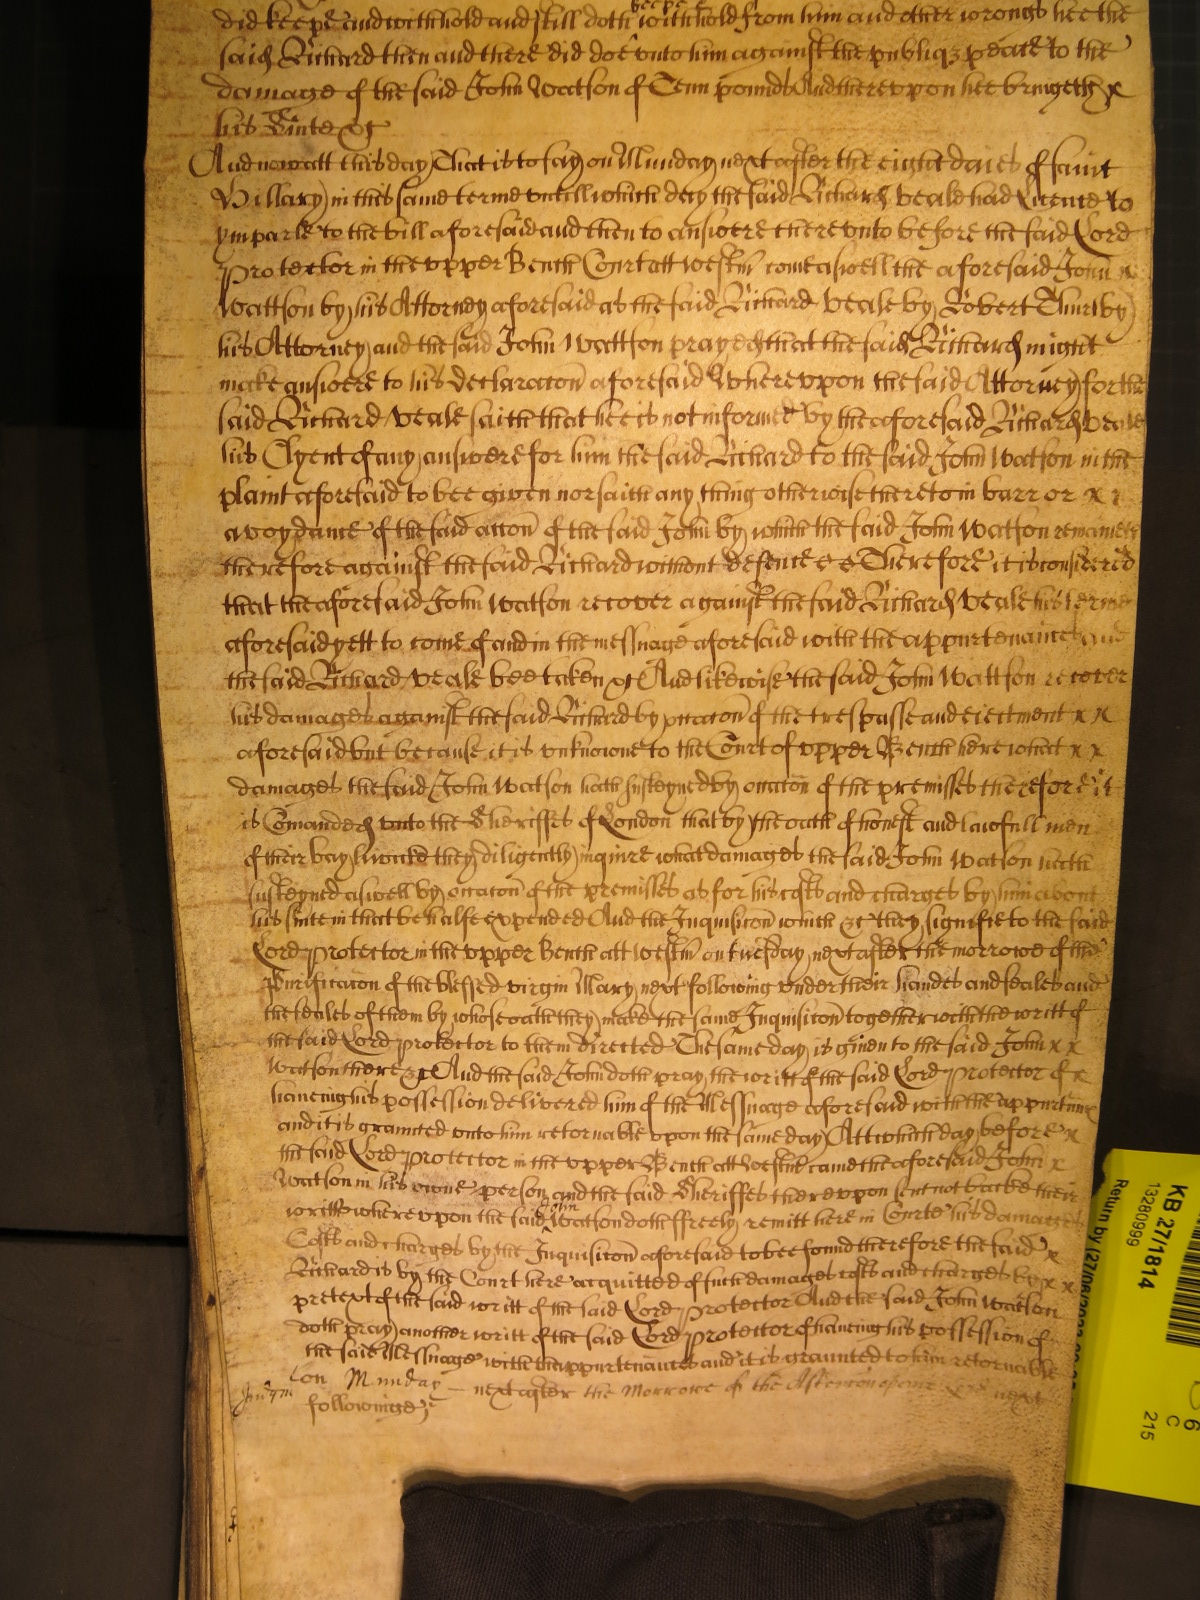 did keepe and withhold and still doth keepe withhold from him and other wrongs hee the
said Richard then and there did doe unto him against the publiq3 peace to the
damage of the said John Watson of Tenn pounds And thereupon hee bringeth x
his Suite &c
And now att this day That is to say on Munday next after the eight daies of saint
Hillary in this same terme untill which day the said Richard Veale had licence to
ymparle to the bill aforesaid and then to answere thereunto before the said Lord
Protector in the upper Bench Court att Westm come aswell the aforesaid John x
Wattson by his Attorney aforesaid as the said Richard Veale by Robert Thurlby
his Attorney and the said John Wattson prayeth that the said Richard might
make answere to his declaracon aforesaid Whereupon the said Attorney for the
said Richard Veale saith that hee is not informed by the aforesaid Richard Veale
his Clyent of any answere for him the said Richard to the said John Watson in the
plaint aforesaid to bee given nor saith any thing otherwise thereto in barr or x x
avoydance of the said accon of the said John by which the said John Watson remaines
therefore against the said Richard without defence Therefore it is considered
that the aforesaid John Watson recover against the said Richard Veale his terme
aforesaid yett to come of and in the messuage aforesaid with the appurtenances And
the said Richard Veale bee taken &c And likewise the said John Wattson recover
his damages against the said Richard by occacon of the trespasse and eiectment x x
aforesaid but because it is unknowne to the Court of upper Bench here what x x
damages the said John Watson hath susteyned by occacon of the premisses therefore it
is Comanded unto the Sheriffes of London that by the oath of honest and lawfull men
of their baylywicke they diligently inquire what damages the said John Watson hath
susteyned aswell by occacon of the premisses as for his costs and charges by him about
his suite in that behalfe expended And the Inquisicon which &c they signifie to the said
Lord Protector in the upper Bench att Westm on Tuesday next after the morrowe of the
Purificacon of the blessed virgin Mary next following under their handes and seales and
the seales of them by whose oath they make the same Inquisicon together with the writt of
the said Lord Protector to them directed The same day is given to the said John x x
Watson there &c And the said John doth pray the writt of the said Lord Protector of x
haveing his possession delivered him of the Messuage aforesaid with the appurtennc
and it is graunted unto him retornable upon the same day Att which day before x
the said Lord Protector in the upper Bench att Westm came the aforesaid John x
Watson in his owne person and the said Sheriffes thereupon sent not backe their
writt whereupon the said John Watson doth freely remitt here in Courte his damages
Costs and charges by the Inquisicon aforesaid to bee found therefore the said x
Richard is by the Court here acquitted of such damages costs and charges by x x
pretext of the said writt of the said Lord Protector And the said John Watson
doth pray another writt of the said Lord Protector of haveing his possession of
the said Messuage with thappurtenances and it is graunted to him retornable
on Munday next after the Morrowe of the Ascencon of our next
followinge &c
KB 27/1814
13280999
Return by (27/0
6
C
215